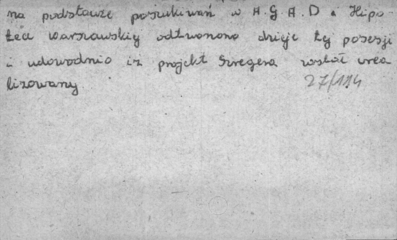 na podstawie poszukiwań w A.G.A.D i Hipo-
tece warszawskiej odtworzono dzieje tej posesji
i udowodnio iż projekt Szregera został zrea
lizowany
27/194